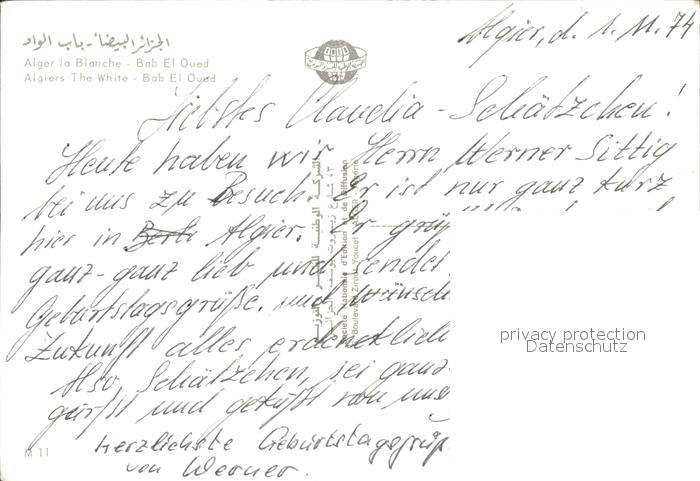 Algier, d. 1. 11. 74
الجزائر البيضاء - باب الواد
Alger la Blanche - Bab El Oued
Algiers The White - Bab El Oued
Liebstes Claudia-Schätzchen!
Heute haben wir Herrn Werner Sittig
bei uns zu Besuch. Er ist nur ganz kurz
hier in Algier. Er grüß
ganz-ganz lieb und sendet
Geburtstagsgrüße. und wünsch
Zukunft alles erdenklich
Also, Schätzchen, sei ganz
und geküßt von uns
Herzlichste Geburtstagsgrüß
von Werner.
M 11
Société Nationale d'Edition et de Diffusion
Boulevard Zirout Youcef
privacy protection
Datenschutz